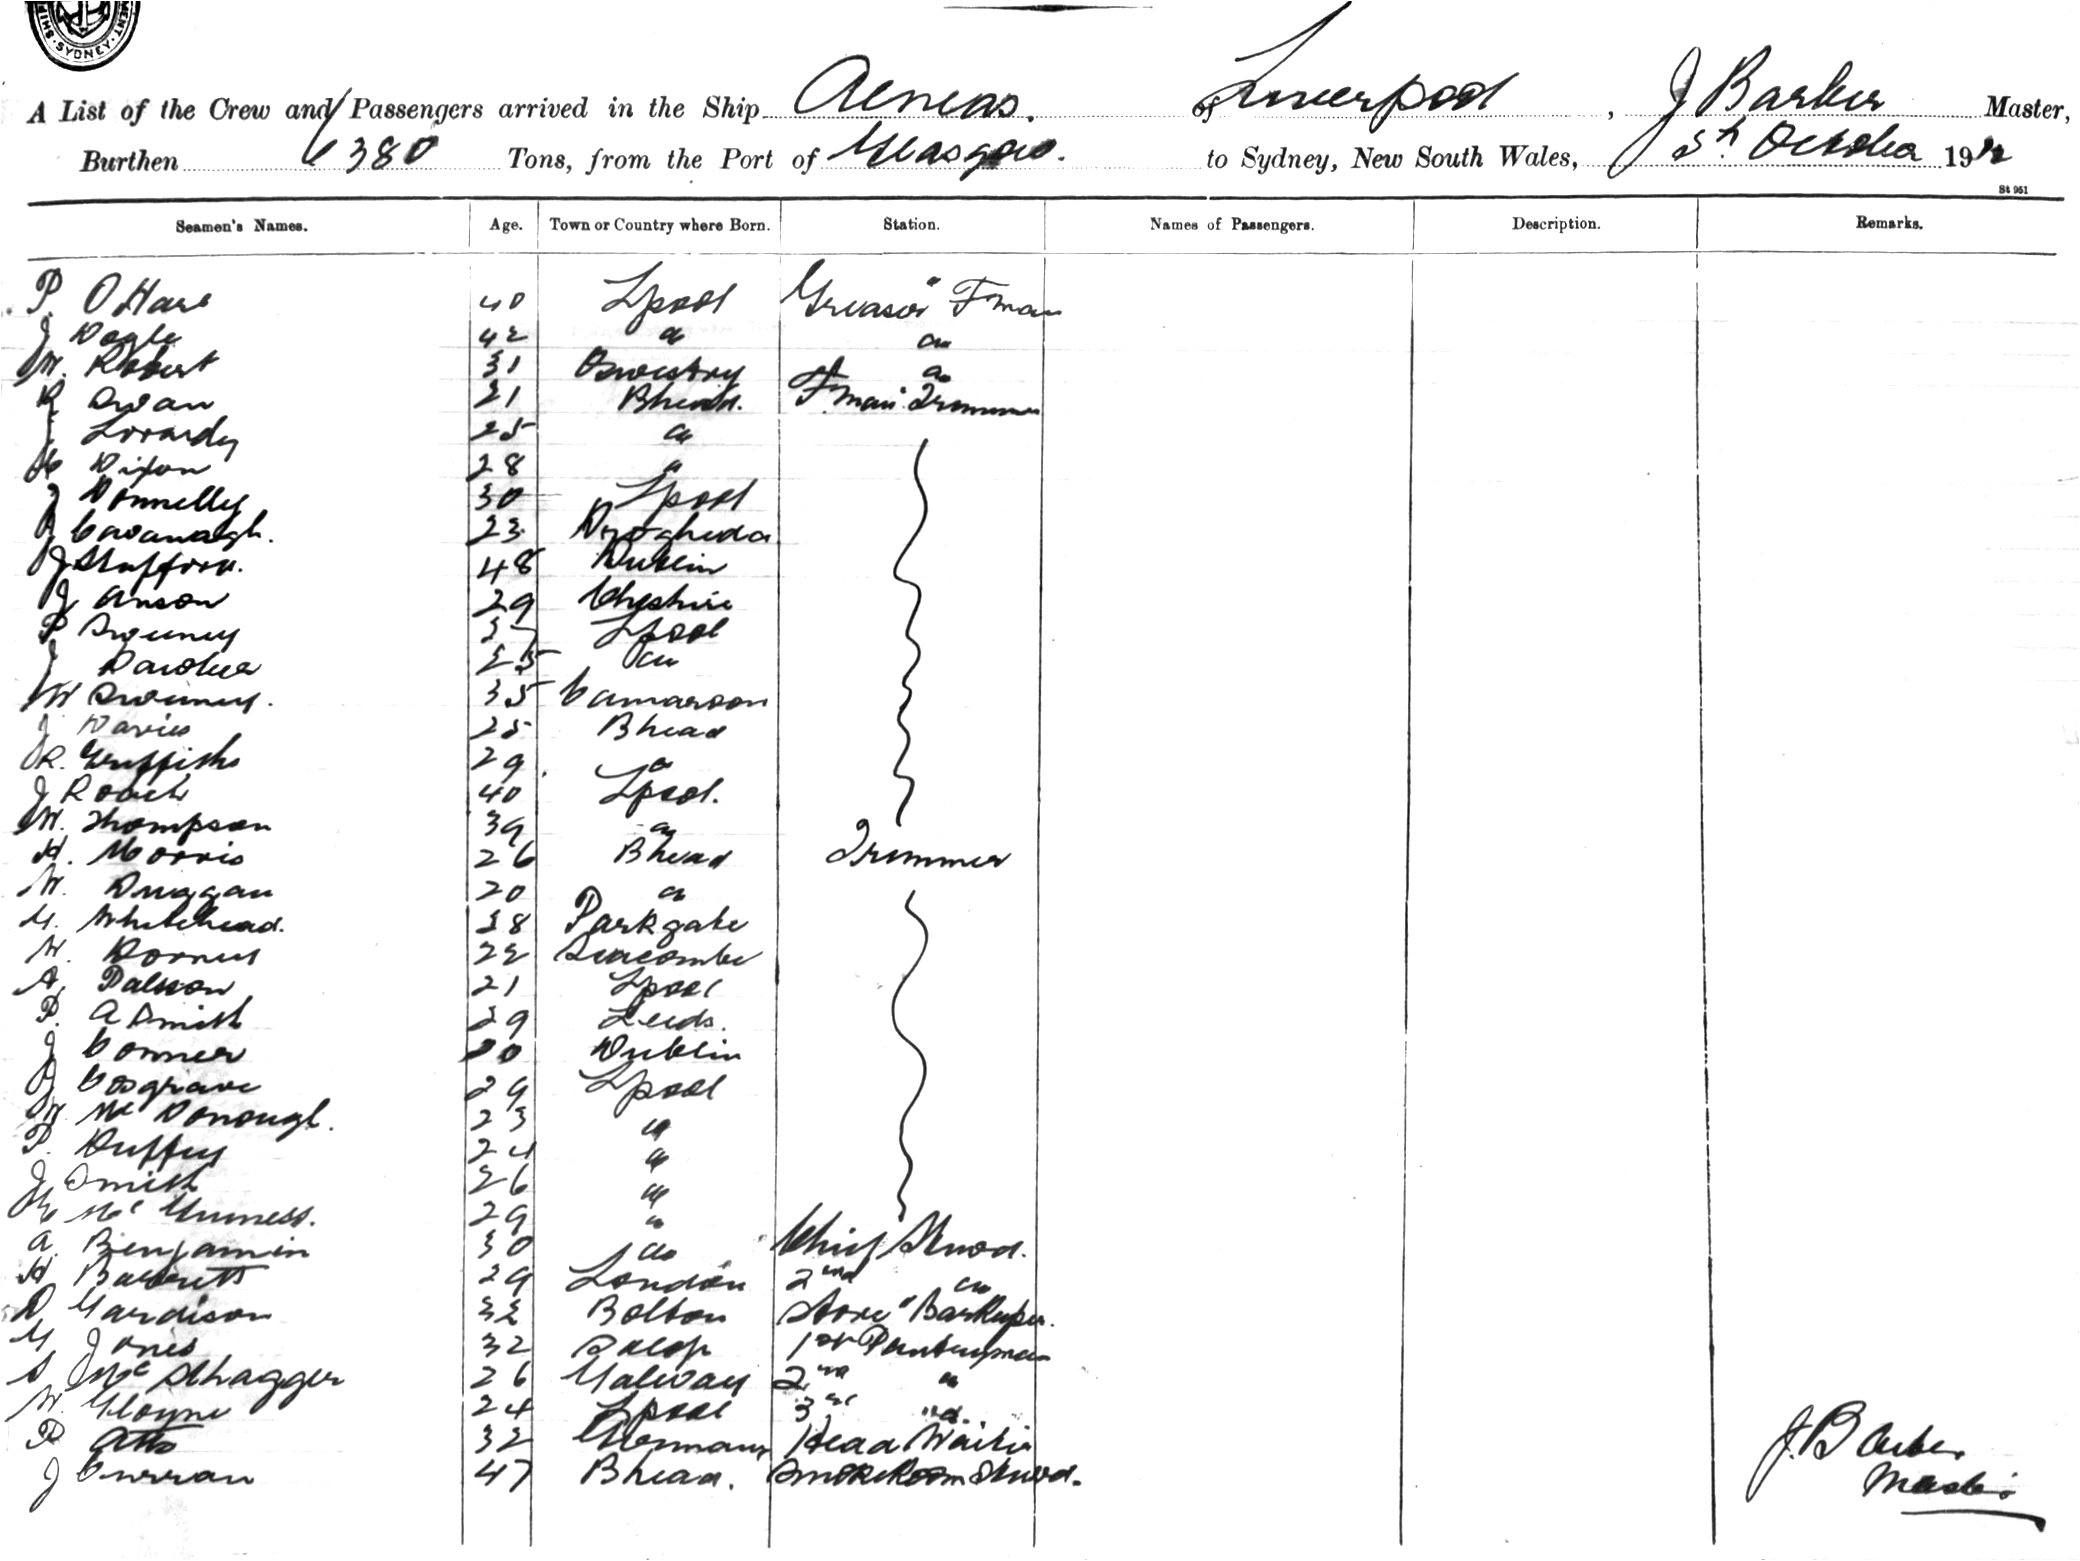 SHIP MENT. SYDNEY.
A List of the Crew and Passengers arrived in the Ship Aeneas. of Liverpool, J Barber Master,
Burthen 6380 Tons, from the Port of Glasgow. to Sydney, New South Wales, 5th October 1912
St 951
Seamen's Names. Age. Town or Country where Born. Station. Names of Passengers. Description. Remarks.
P. O'Hare 40 Lpool Greaser " Fman
J Doyle 42 " "
W. Robert 31 Oswestry "
R Swan 21 Bhead. Fman Trimmer
J 25 "
H Dixon 28 "
J Donnelly 30 Lpool
Cavanagh. 23 Drogheda
J Stafford. 48 Dublin
J Anson 29 Cheshire
P Sweeney 37 Lpool
J 25 do
W Sweeney. 35 Carnarvon
J Davies 25 Bhead
R. Griffiths 29 "
J Roach 40 Lpool.
W. Thompson 39 "
H. Morris 26 Bhead Trimmer
W. Duggan 20 "
G. Whitehead. 38 Parkgate
W. 22 Seacombe
A. 21 Lpool
P. A Smith 29 Leeds.
J Conner 20 Dublin
J Cosgrave 29 Lpool
W. McDonough. 23 "
P. Duffey 24 "
J Smith 26 "
Mc Guiness. 29 "
A. Benjamin 30 do Chief Stwd.
H Barrett 29 London 2nd do
D Hardison 32 Bolton Store " Barkeeper.
G Jones 32 Salop 1st Pantryman
S Mc 26 Galway 2nd "
W. Gloyne 24 Lpool 3rd "
P Otto 32 Germany Head Waiter
J Curran 47 Bhead. Smoke Room Stwd.
J. Barber
Master